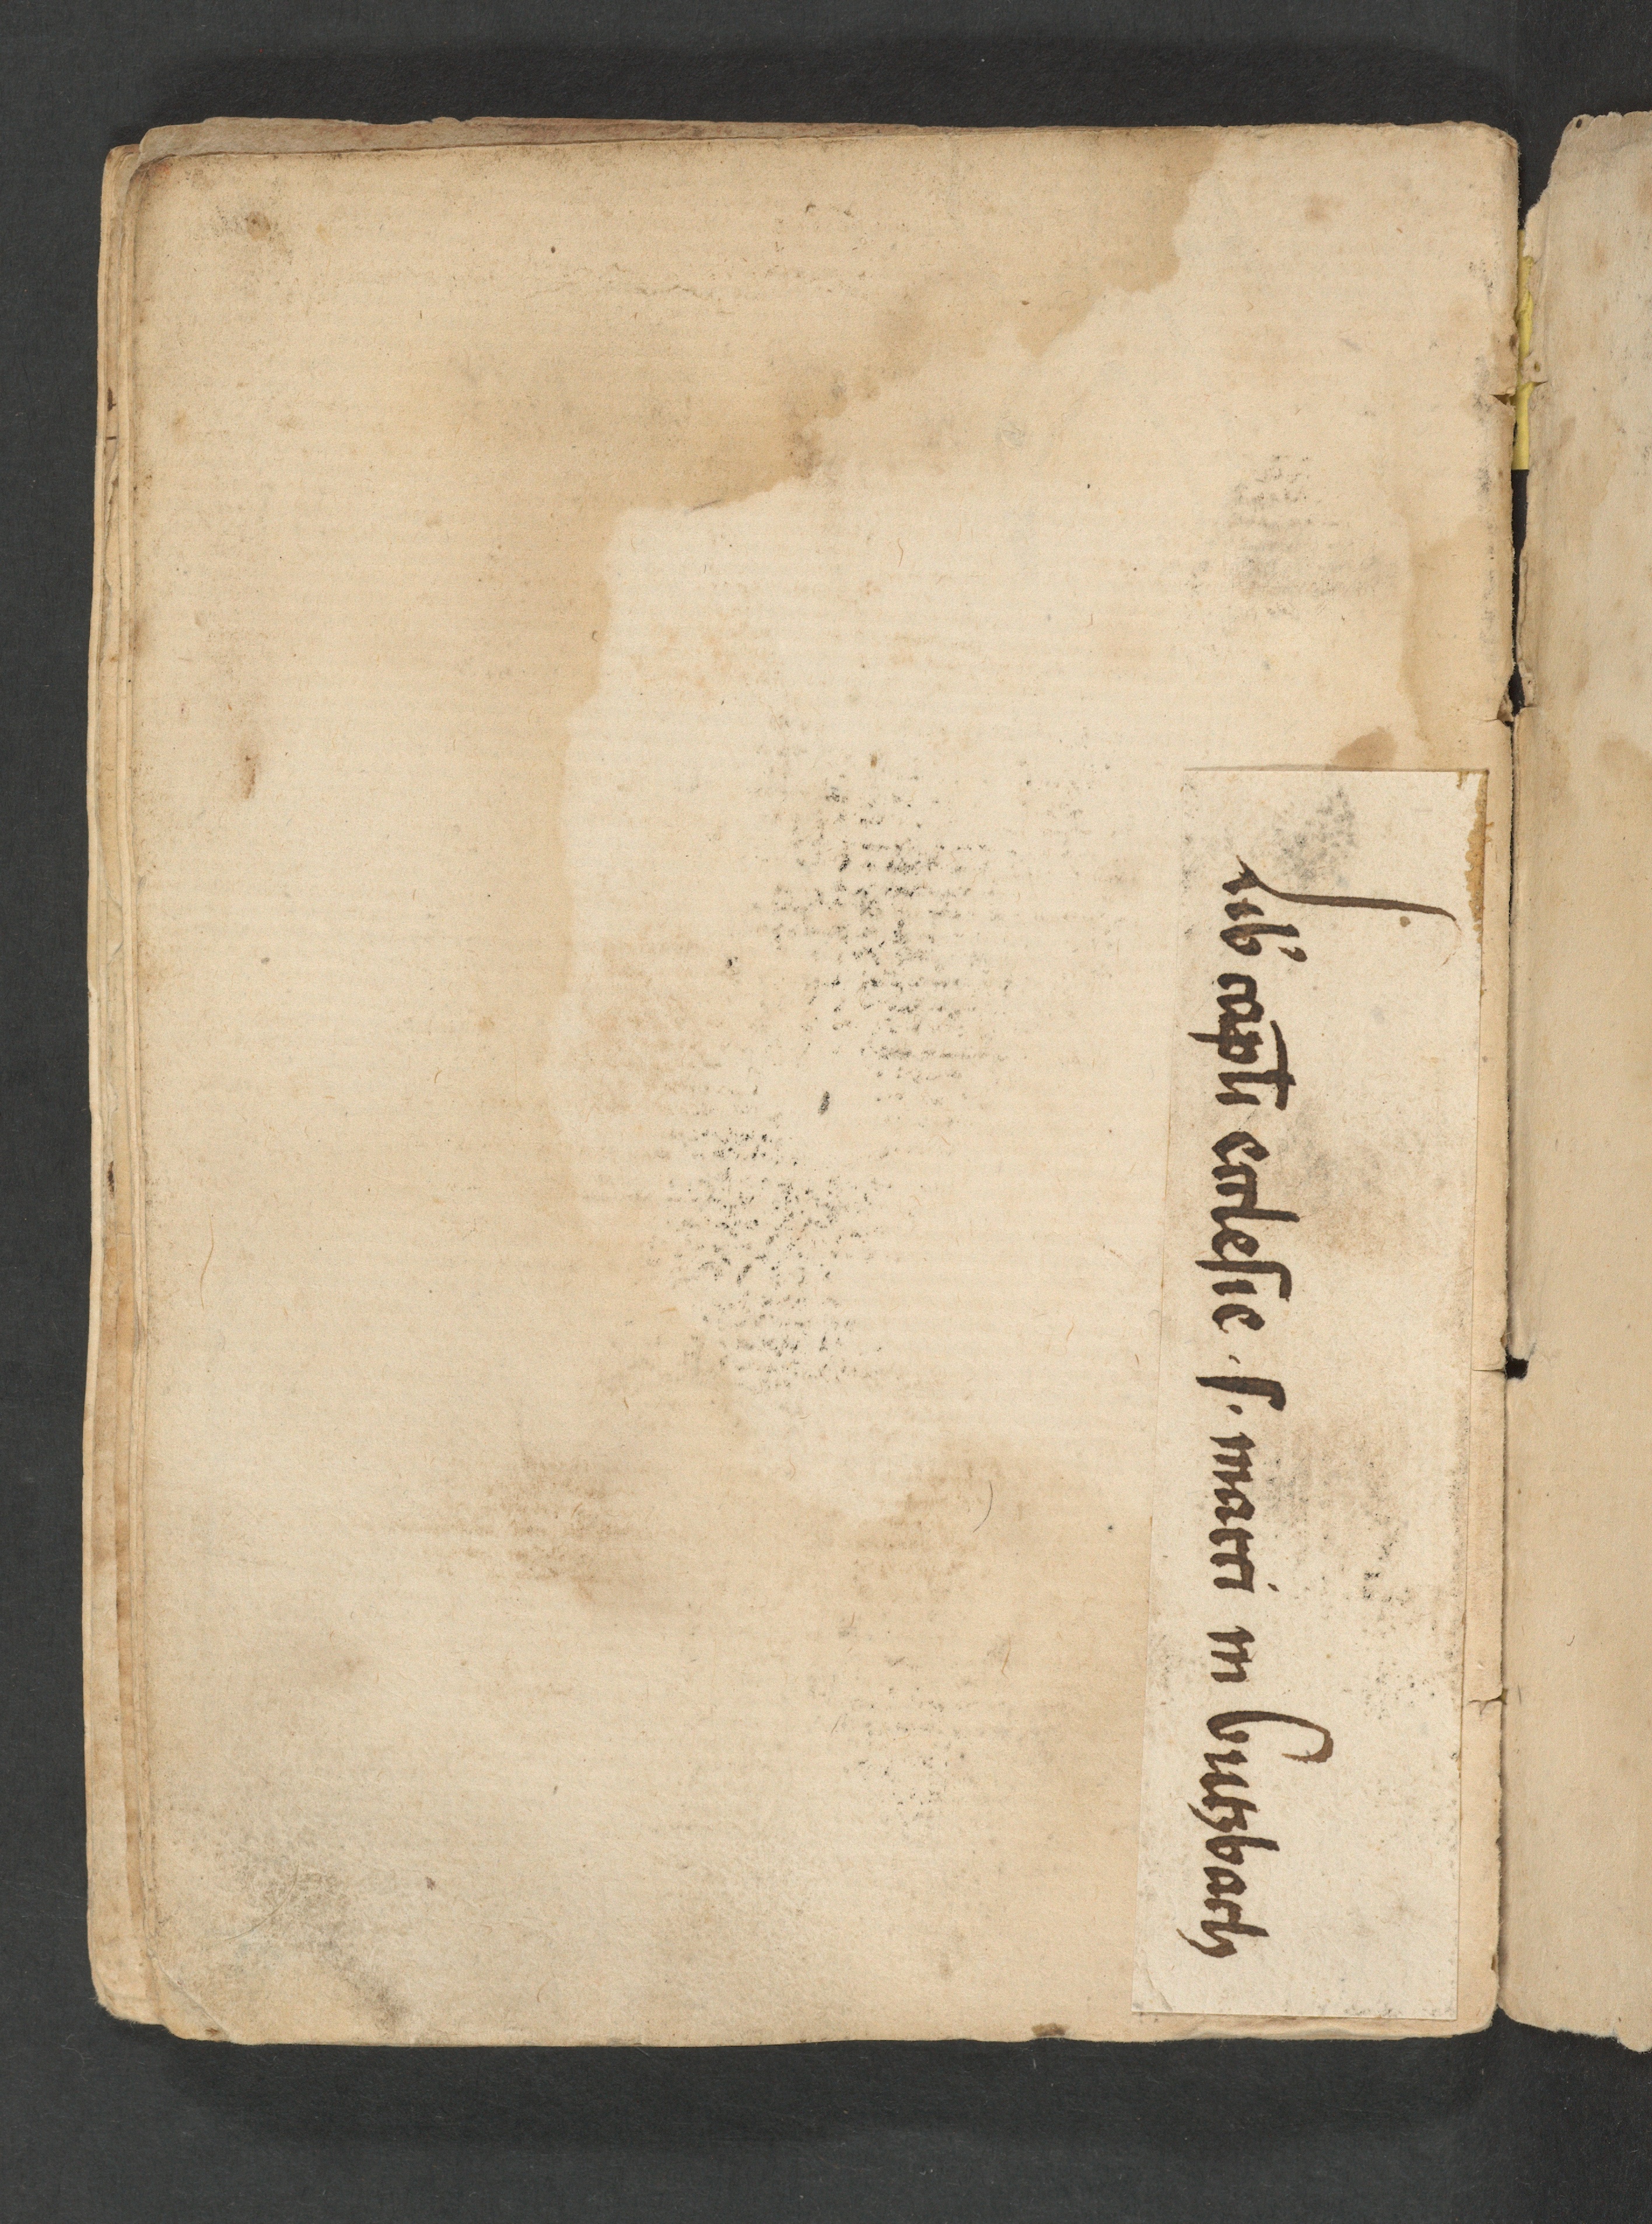 Lib' capti̅ ecclesie · s · marci in butzbach